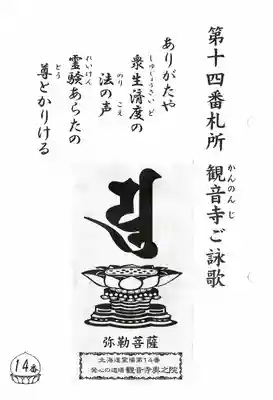 第十四番札所 観音寺ご詠歌
かんのんじ
ありがたや
衆生済度の
しゅじょうさいど
法の声
のり こえ
霊験あらたの
れいけん
尊とかりける
とう
弥勒菩薩
北海道霊場第14番
発心の道場 観音寺奥之院
14番